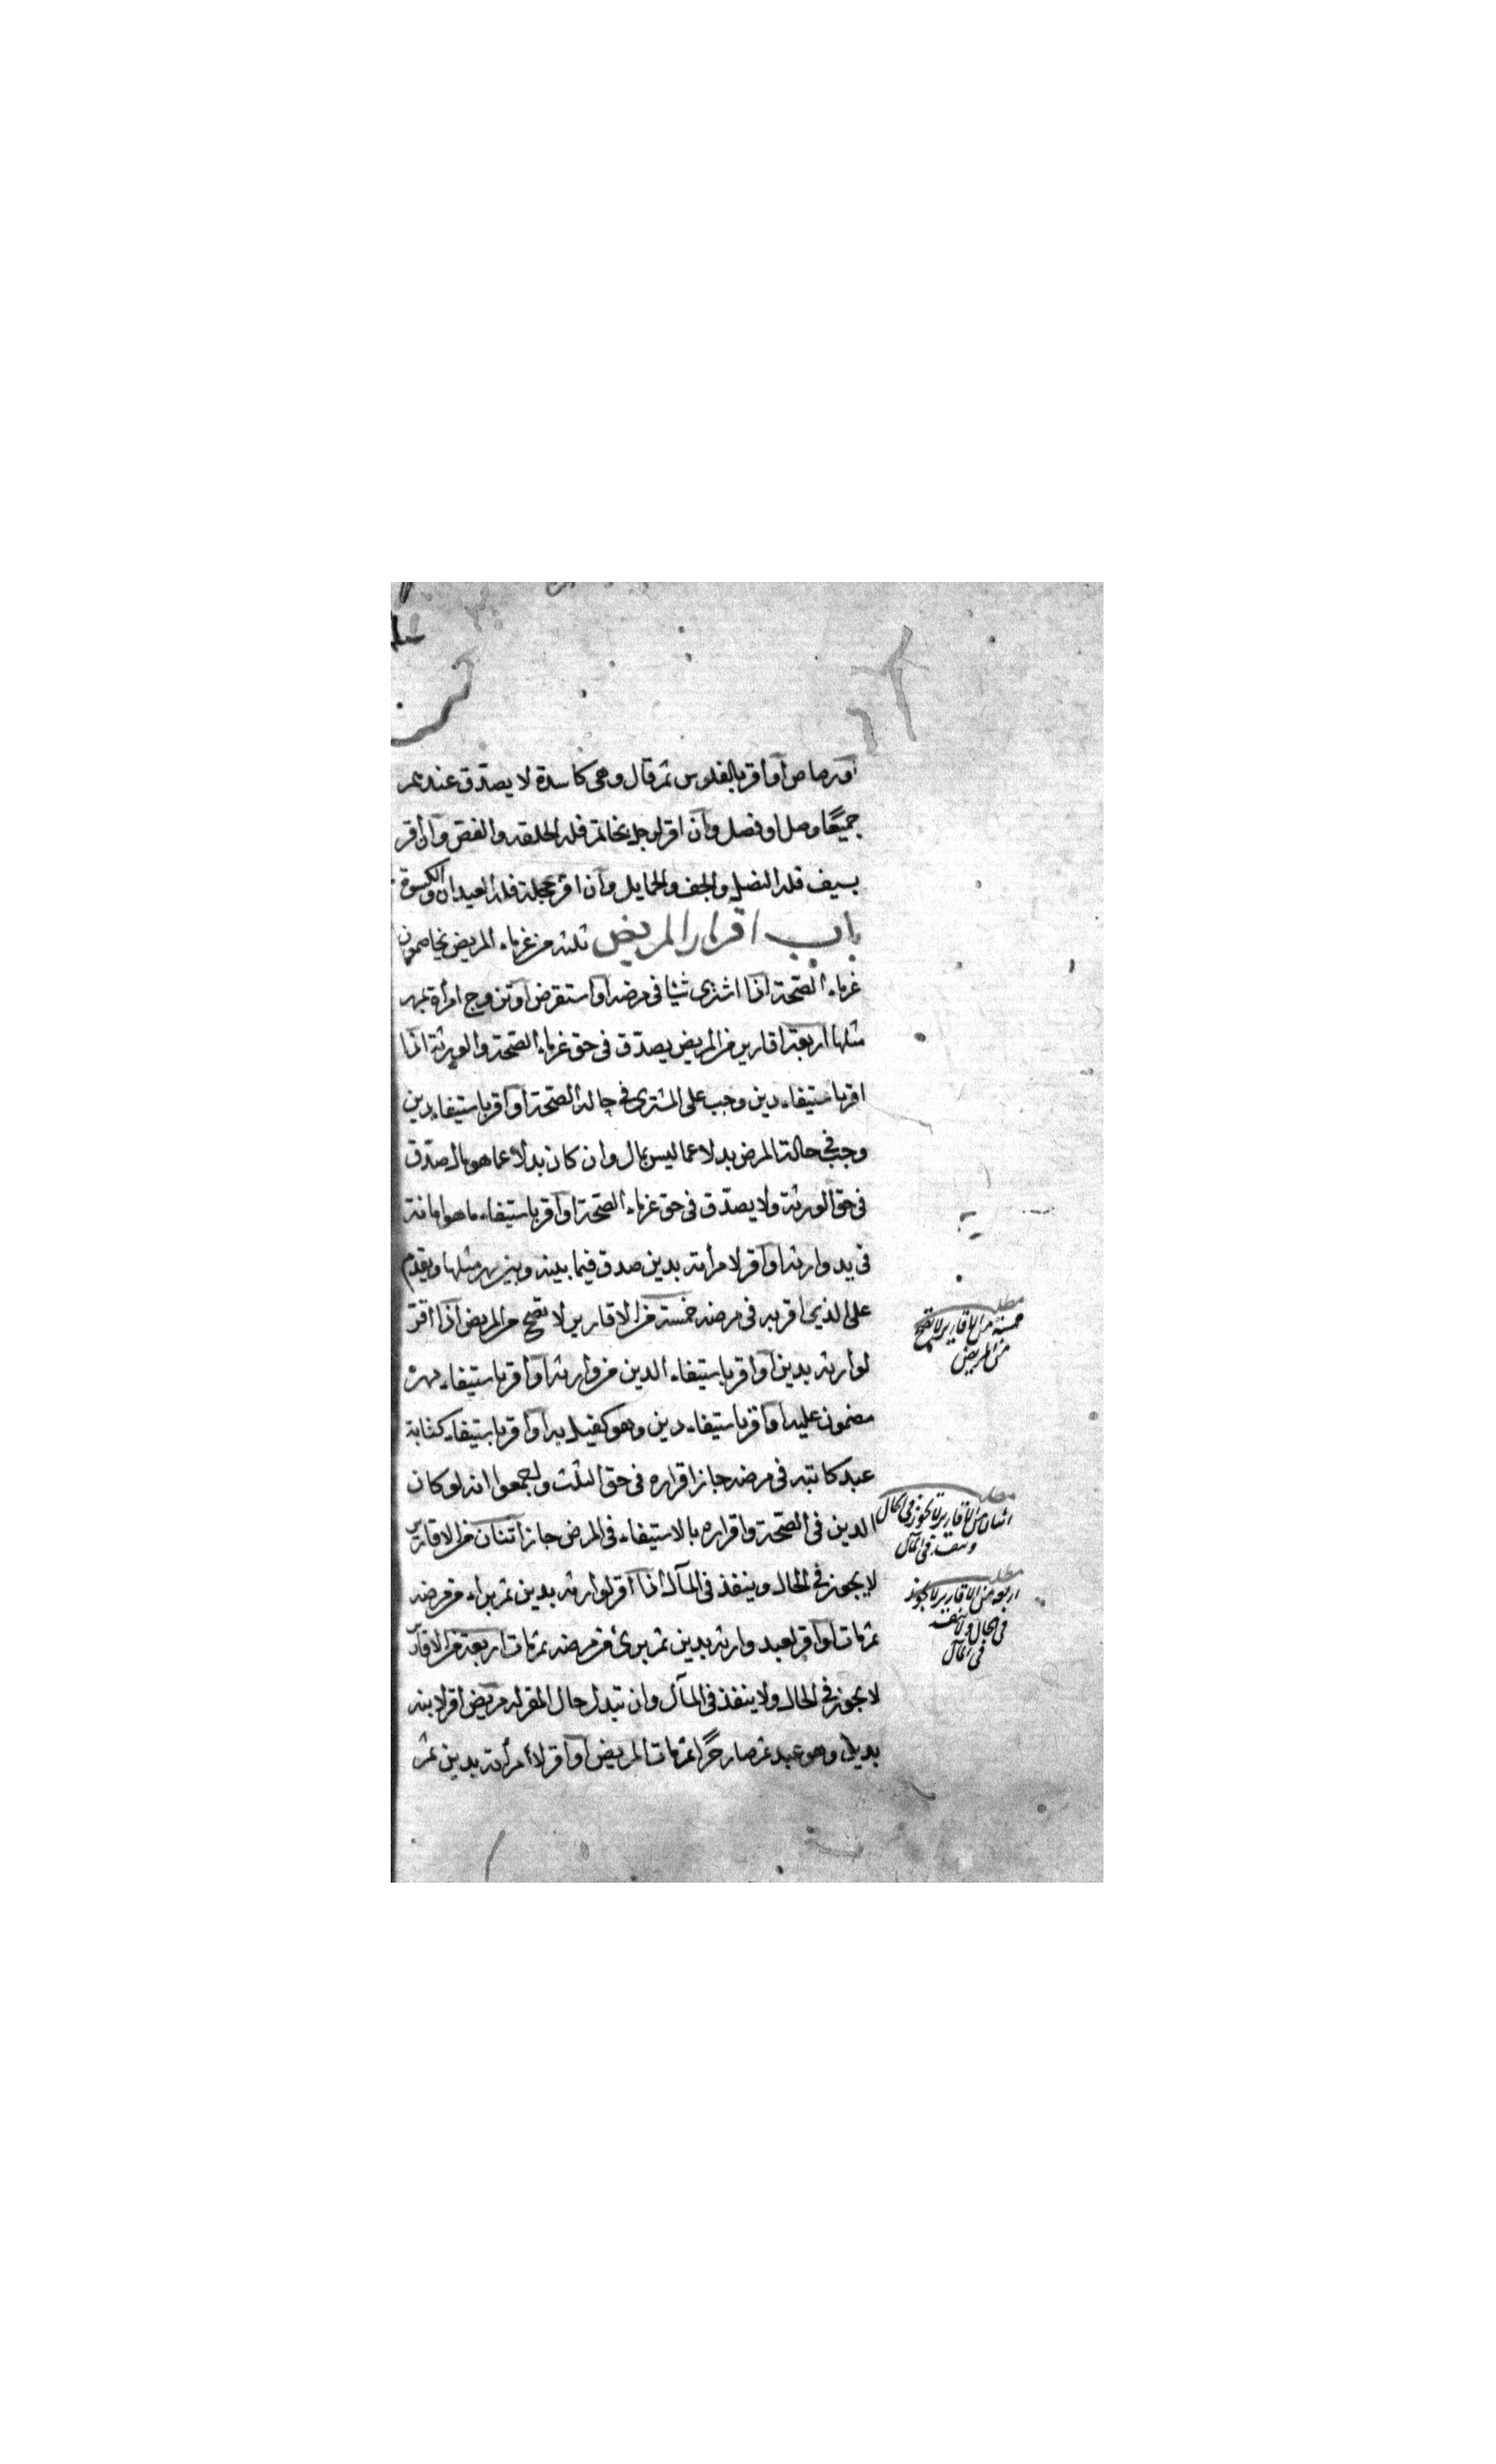 او رصاص او اقر بالفلوس ثم قال وهى كاسدة لا يصدق عندهم
جميعًا وصل او فصل وان اقر لرجل بخاتم فله الحلقة والفص وان اقر
بسيف فله النصل والجفن والحمايل وان اقر بحجلة فله العيدان والكسوة
باب اقرار المريض ثلثة من غرماء المريض يخاصمون
غرماء الصحة اذا اشترى شيئا فى مرضه او استقرض او تزوج امرأة بمهر
مثلها اربعة اقارير من المريض يصدّق فى حق غرماء الصحة والورثة اذا
اقر باستيفاء دين وجب على المشترى فى حالة الصحة او اقر باستيفاء دين
وجب فى حالة المرض بدلا عما ليس بمال وان كان بدلا عما هو مال صدّق
فى حق الورثة ولا يصدّق فى حق غرماء الصحة او اقر باستيفاء ما هو امانة
فى يد وارثه او اقر لامرأته بدين صدق فيما بينه وبين مهر مثلها ويقدم
على الذى اقر به فى مرضه خمسة من الاقارير لا تصح من المريض اذا اقرّ
لوارثه بدين او اقر باستيفاء الدين من وارثه او اقر باستيفاء مهر
مضمون عليه او اقر باستيفاء دين وهو كفيل به او اقر باستيفاء كتابة
عبد كاتبه فى مرضه جاز اقراره فى حق الثلث واجمعوا انه لو كان
الدين فى الصّحة واقراره بالاستيفاء فى المرض جاز اثنان من الاقارير
لا يجوز فى الحال وينفذ فى المآل اذا اقر لوارثه بدين ثم براء من مرضه
ثم مات او اقر لعبد وارثه بدين ثم برئ من مرضه ثم مات اربعة من الاقارير
لا يجوز فى الحال ولا ينفذ فى المآل وان تبدل حال المقر له مريض اقر لابنه
بدين وهو عبد ثم صار حرًّا ثم مات المريض او اقر لامرأته بدين ثم
مطلب
خمسة من الاقارير لا تصح
من المريض
مطلب
اثنان من الاقارير لا تجوز فى الحال
وتنفذ فى المآل
مطلب
اربعة من الاقارير لا تجوز
فى الحال ولا تنفذ
فى المآل